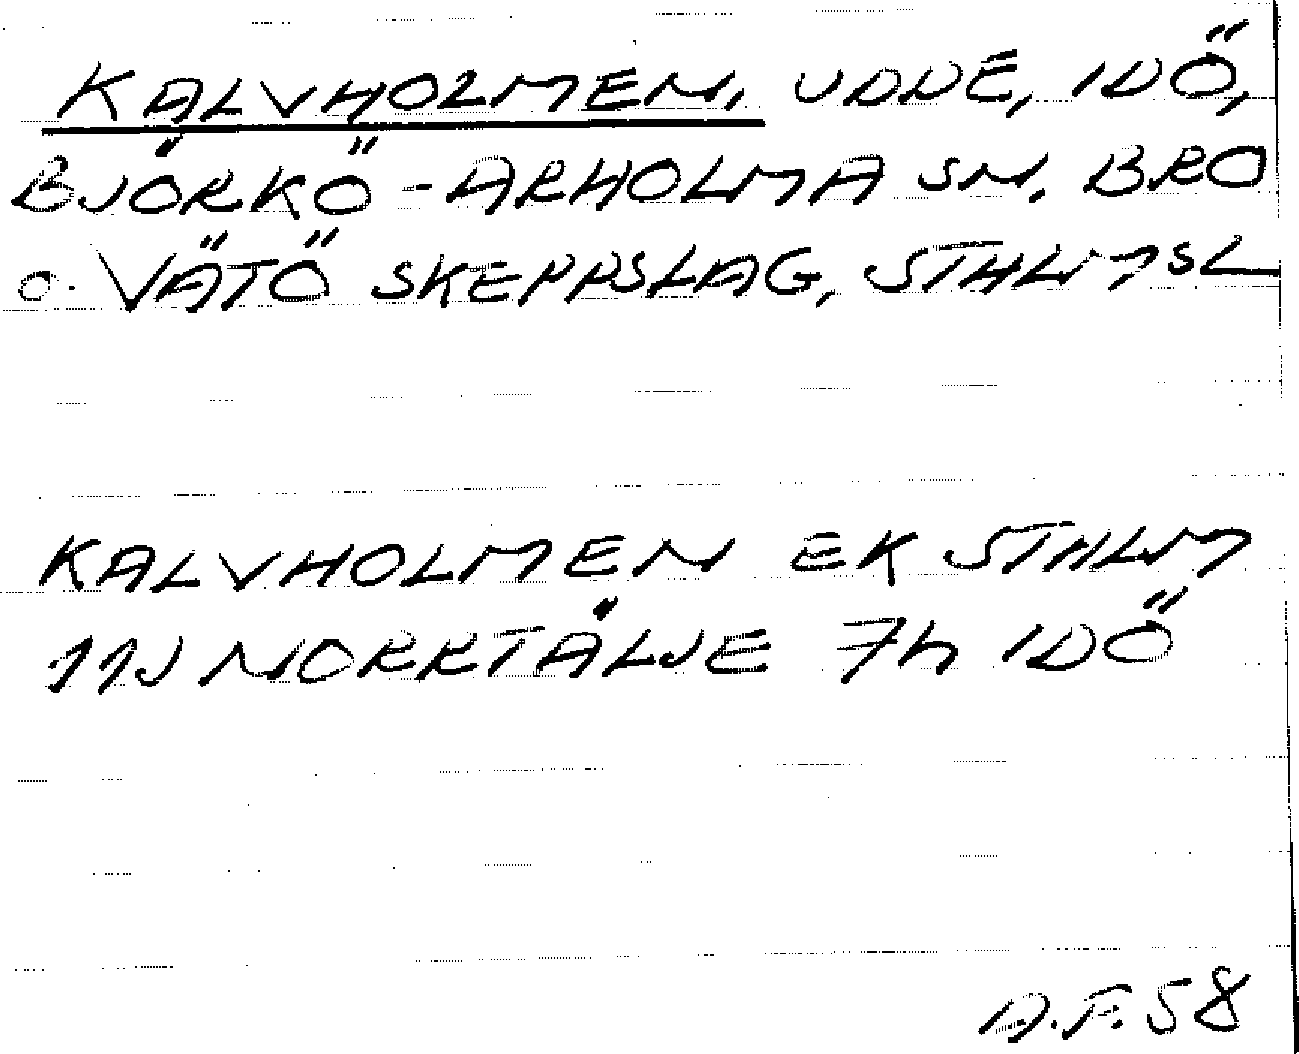 KALVHOLMEN, UDDE, IDÖ,
BJÖRKÖ-ARHOLMA SN, BRO
O. VÄTÖ SKEPPSLAG, STHLMSL
KALVHOLMEN EK STHLM
11J NORRTÄLJE 7h IDÖ
A.F. 58